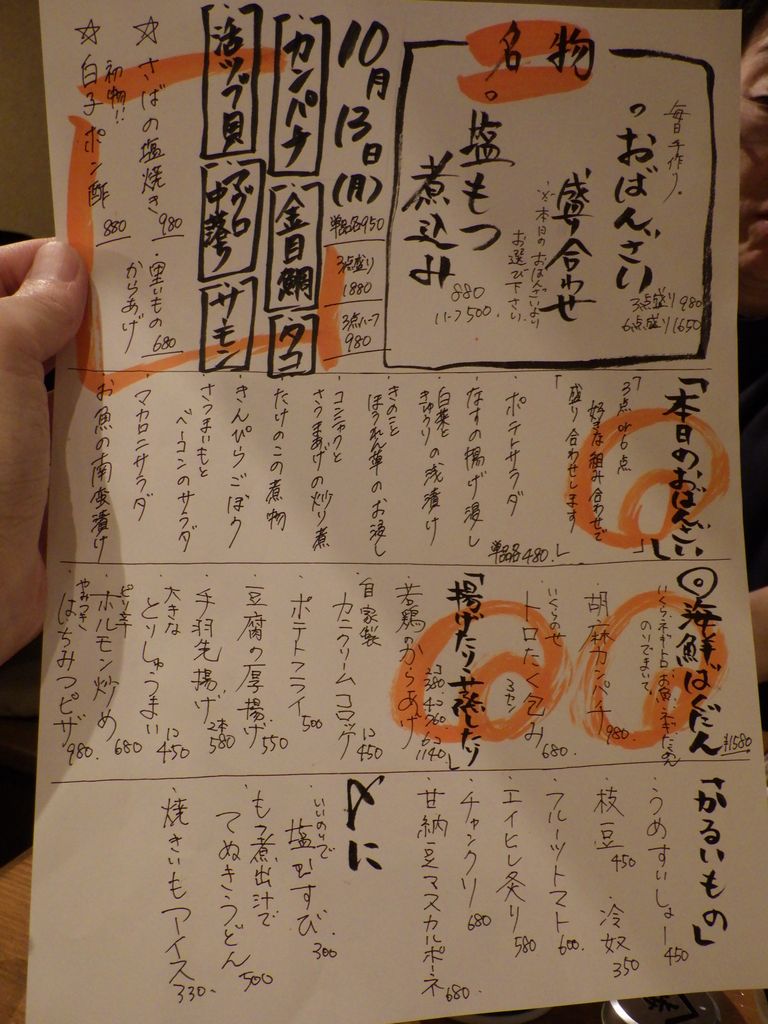 名物
毎日手作り。
。おばんざい
盛り合わせ
3点盛り980
6点盛り1650
※本日のおばんざいより
お選び下さい。
。塩もつ
煮込み
880
ハーフ500.
10月13日(月)
単品各950
3点盛り
1880
3点ハーフ
980
カンパチ
金目鯛
タコ
活ツブ貝
マグロ
中落ち
サーモン
☆さばの塩焼き 980
・里いもの
からあげ 680
初物!!
☆白子ポン酢 880
「本日のおばんざい」
「3点or6点
好きな組み合わせで
盛り合わせします」
・ポテトサラダ
・なすの揚げ浸し
・白菜と
きゅうりの浅漬け
・きのこと
ほうれん草のお浸し
・コンニャクと
さつまあげの炒り煮
・たけのこの煮物
・きんぴらごぼう
・さつまいもと
ベーコンのサラダ
・マカロニサラダ
・お魚の南蛮漬け
単品各480.
◎海鮮ばくだん
¥1580
いくら、ネギトロ、お魚、
のりでまいて、
・胡麻カンパチ 980.
いくらのせ
・トロたく包み 680.
「揚げたり、蒸したり」
・若鶏のからあげ
2コ380 4コ760 6コ1140
自家製
・カニクリームコロッケ 1コ450
・ポテトフライ 500
・豆腐の厚揚げ 550
・手羽先揚げ 2本580
・大きな
とりしゅうまい 1コ450
ピリ辛
・ホルモン炒め 680
やみつき
・はちみつピザ 980.
「かるいもの」
・うめすいしょー 450
・枝豆 450
・冷奴 350
・フルーツトマト 600.
・エイヒレ炙り 580
・チャンクリ 680
・甘納豆マスカルポーネ 680.
〆に
・塩むすび 300
・もつ煮出汁で
てぬきうどん 500
・焼きいもアイス 330.